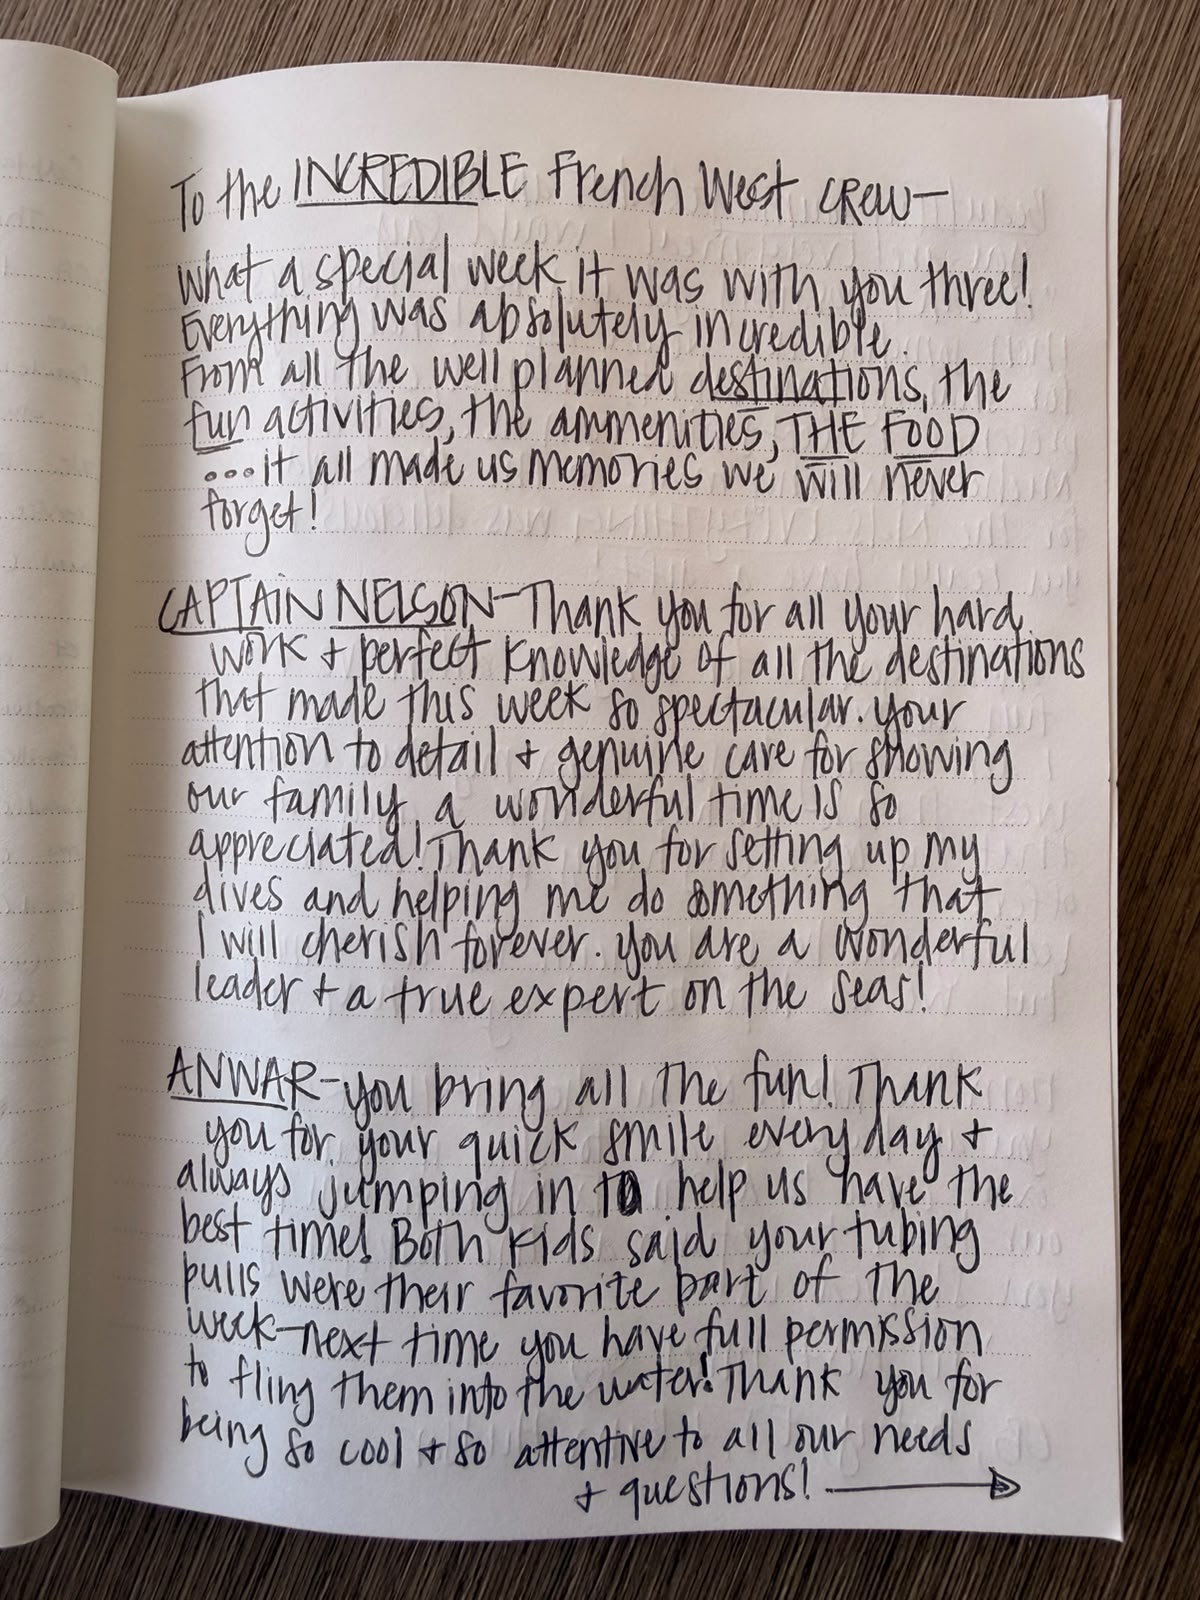 To the INCREDIBLE French West CREW—
What a special week it was with you three!
Everything was absolutely incredible.
From all the well planned destinations, the
fun activities, the ammenities, THE FOOD
...it all made us memories we will never
forget!
CAPTAIN NELSON—Thank you for all your hard
work + perfect knowledge of all the destinations
that made this week so spectacular. Your
attention to detail + genuine care for showing
our family a wonderful time is so
appreciated! Thank you for setting up my
dives and helping me do something that
I will cherish forever. You are a wonderful
leader + a true expert on the seas!
ANWAR—you bring all the fun! Thank
you for your quick smile everyday +
always jumping in to help us have the
best time! Both kids said your tubing
pulls were their favorite part of the
week—next time you have full permission
to fling them into the water! Thank you for
being so cool + so attentive to all our needs
+ questions! →